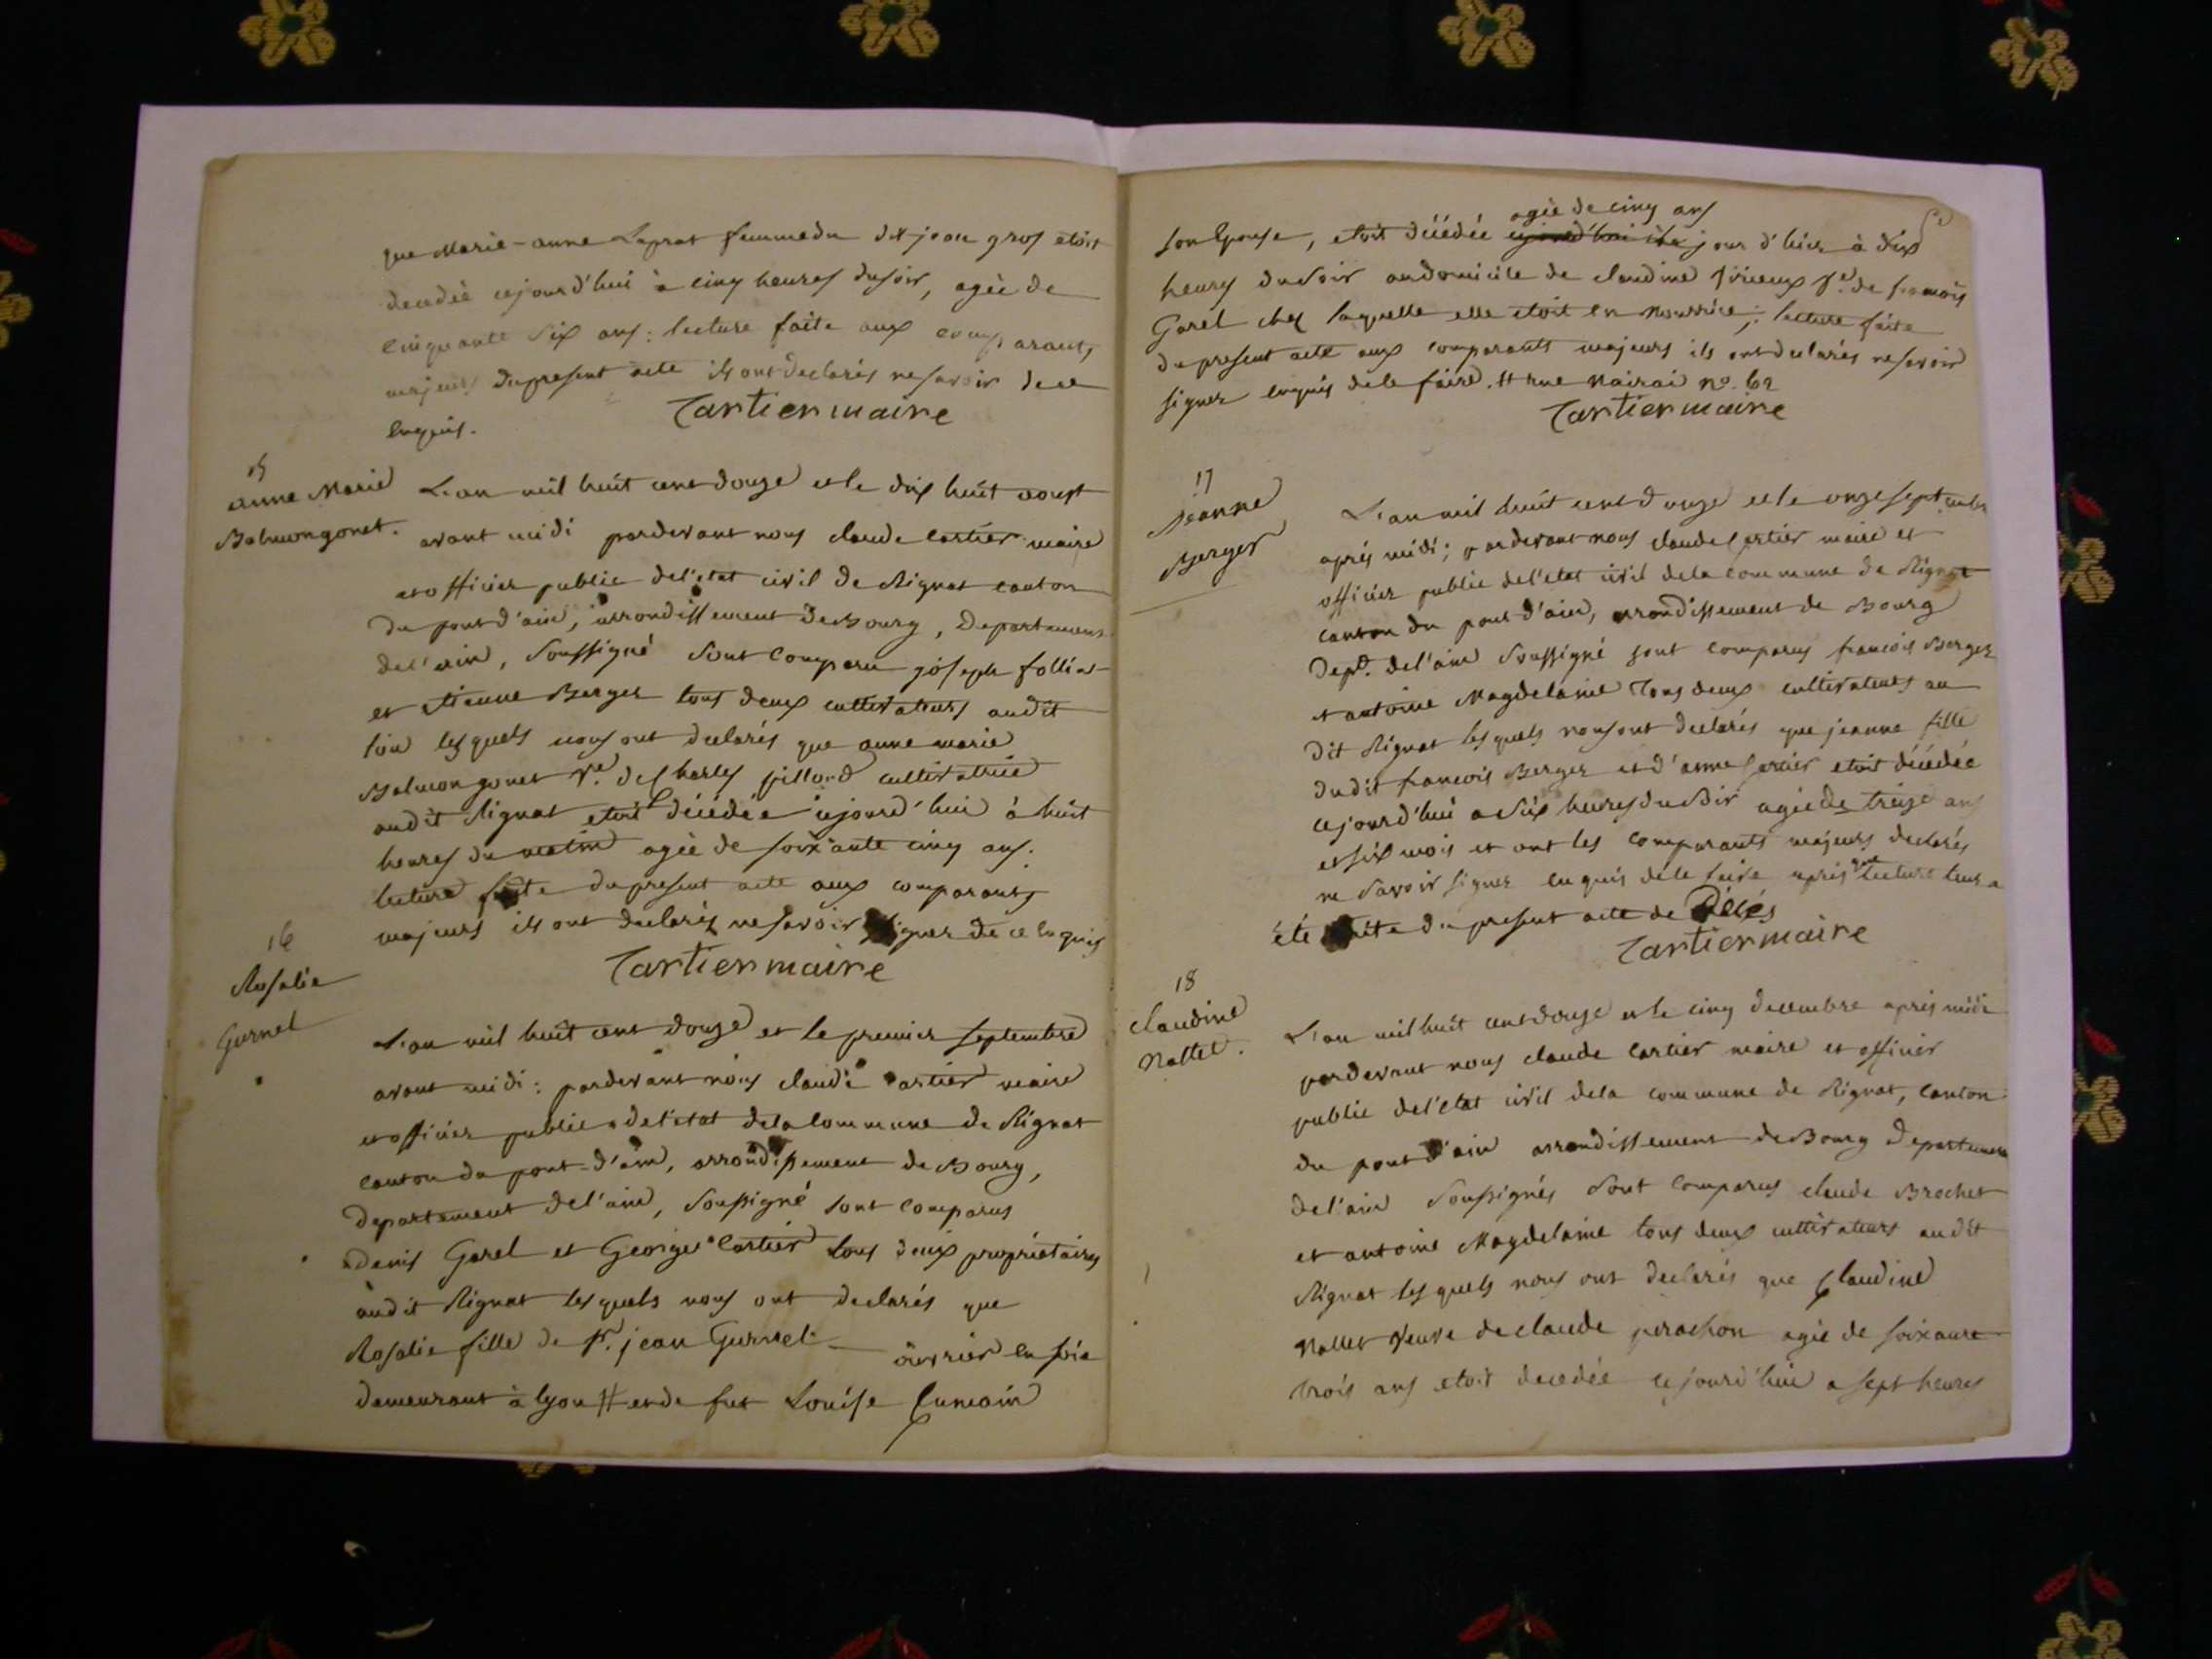 que Marie-anne Laprat femme du dit jean gros etoit
decedée cejourd'hui à cinq heures du soir, agée de
cinquante six ans: lecture faite aux comparants
majeurs du present acte ils ont declarés ne savoir de ce
enquis.
Cartier maire
15
anne Marie
Balmongonet.
L'an mil huit cent douze et le dix huit aoust
avant midi pardevant nous claude cartier maire
et officier public de l'etat civil de Rignat canton
du pont d'ain, arrondissement de Bourg, Departement
de l'ain, soussigné sont comparu joseph folliat
et etienne Berger tous deux cultivateurs audit
lieu lesquels nous ont declarés que anne marie
Balmongonet Ve. de Charles pilland cultivatrice
audit Rignat etoit décédée cejourd'hui à huit
heures du matin agée de soixante cinq ans.
lecture faite du present acte aux comparants
majeurs ils ont declarés ne savoir signer de ce enquis
Cartier maire
16
Rosalie
Gurnel
L'an mil huit cent douze et le premier septembre
avant midi: pardevant nous claude cartier maire
et officier public de l'etat de la commune de Rignat
canton du pont-d'ain, arrondissement de Bourg,
departement de l'ain, soussigné sont comparus
denis Garel et Georges Cartier tous deux propriétaires
audit Rignat lesquels nous ont declarés que
Rosalie fille de Sr. jean Gurnel ouvrier en soie
demeurant à lyon # et de fut Louise
agée de cinq ans
son Epouse, etoit décédée cejourd'hui jour d'hier à dix
heures du soir au domicile de claudine Ve. de francois
Garel chez laquelle elle etoit en nourrice; lecture faite
du present acte aux comparants majeurs ils ont declarés ne savoir
signer enquis de le faire. # rue Nairai no. 62
Cartier maire
17
Jeanne
Berger
L'an mil huit cent douze et le onze septembre
après midi; pardevant nous claude Cartier maire et
officier public de l'etat civil de la commune de Rignat
canton du pont d'ain, arrondissement de Bourg
Dept. de l'ain soussigné sont comparus francois Berger
et antoine Magdelaine tous deux cultivateurs au
dit Rignat lesquels nous ont declarés que jeanne fille
dudit francois Berger et d'anne Cartier etoit décédée
cejourd'hui a six heures du soir agée de treize ans
et six mois et ont les comparants majeurs declarés
ne savoir signer enquis de le faire après que lecture leur a
été faite du present acte de décés
Cartier maire
18
claudine
Nallet.
L'an mil huit cent douze et le cinq decembre après midi
pardevant nous claude cartier maire et officier
public de l'etat civil de la commune de Rignat, canton
du pont d'ain arrondissement de Bourg departement
de l'ain soussignés sont comparus claude Brochet
et antoine Magdelaine tous deux cultivateurs audit
Rignat lesquels nous ont declarés que Claudine
Nallet veuve de claude perachon agée de soixante
trois ans etoit decedée cejourd'hui a sept heures